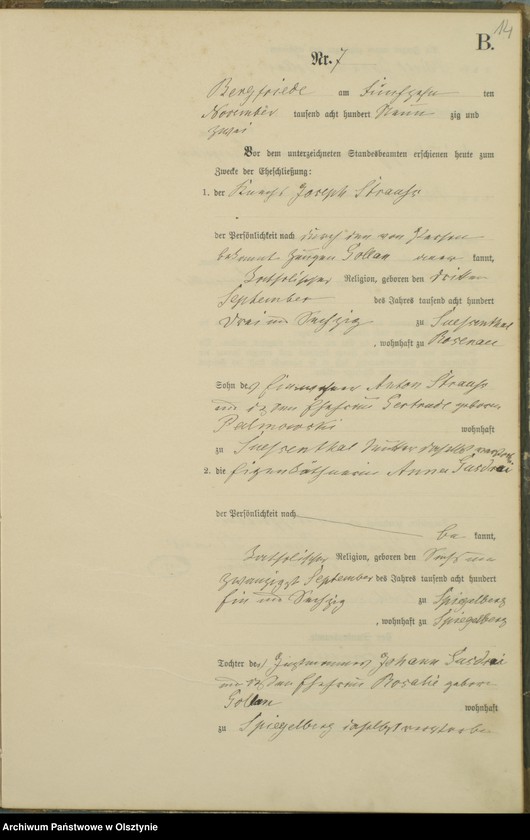 14
B.
Nr. 7
Bergfriede am fünfzehn ten
November tausend acht hundert Neun zig und
zwei
Vor dem unterzeichneten Standesbeamten erschienen heute zum
Zwecke der Eheschließung:
1. der Knecht Joseph Strauss
der Persönlichkeit nach durch den von Person
bekannt Zeugen Gollan kannt,
katholischer Religion, geboren den dritten
September des Jahres tausend acht hundert
drei und Sechzig zu Suessenthal
, wohnhaft zu Rosenau
Sohn des Anton Strauss
und dessen Ehefrau Gertrude geboren
Palmowski wohnhaft
zu Suessenthal daselbst
2. die Anna
der Persönlichkeit nach
be kannt,
katholischer Religion, geboren den Sechs und
zwanzigst September des Jahres tausend acht hundert
Ein und Sechzig zu Spiegelberg
, wohnhaft zu Spiegelberg
Tochter des Johann
und dessen Ehefrau Rosalie geboren
Gollan wohnhaft
zu Spiegelberg daselbst verstorben
Archiwum Państwowe w Olsztynie